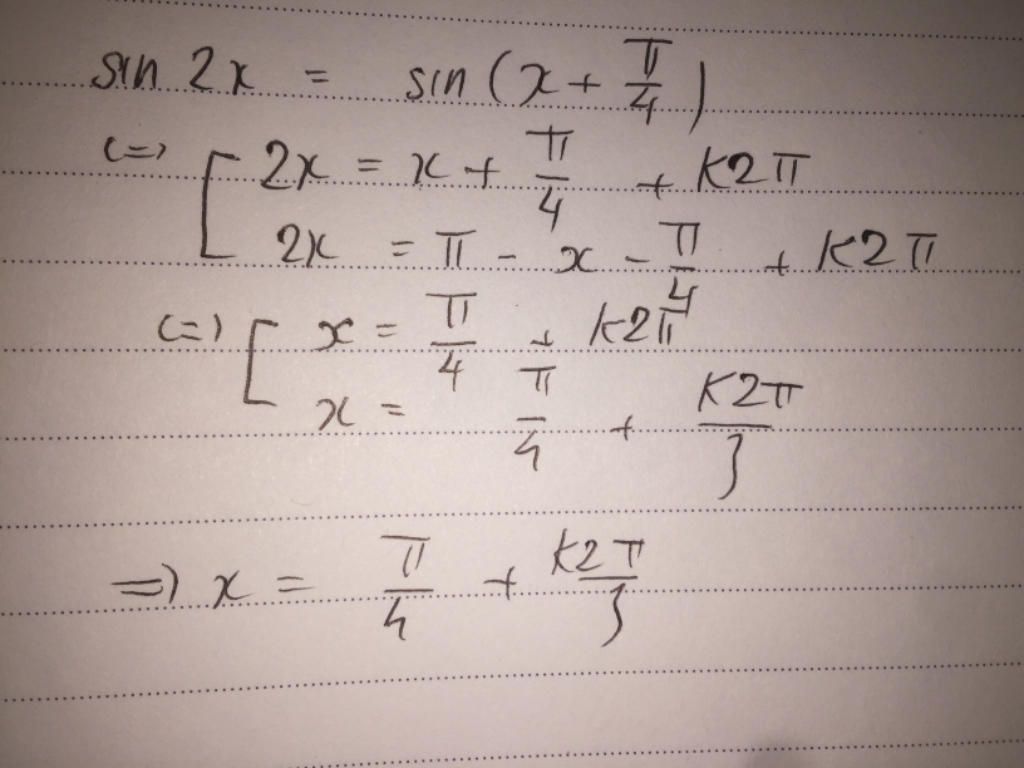 sin 2x = sin (x + π/4)
(=) [ 2x = x + π/4 + K2π
2x = π - x - π/4 + K2π
(=) [ x = π/4 + K2π
x = π/4 + K2π/3
=) x = π/4 + K2π/3